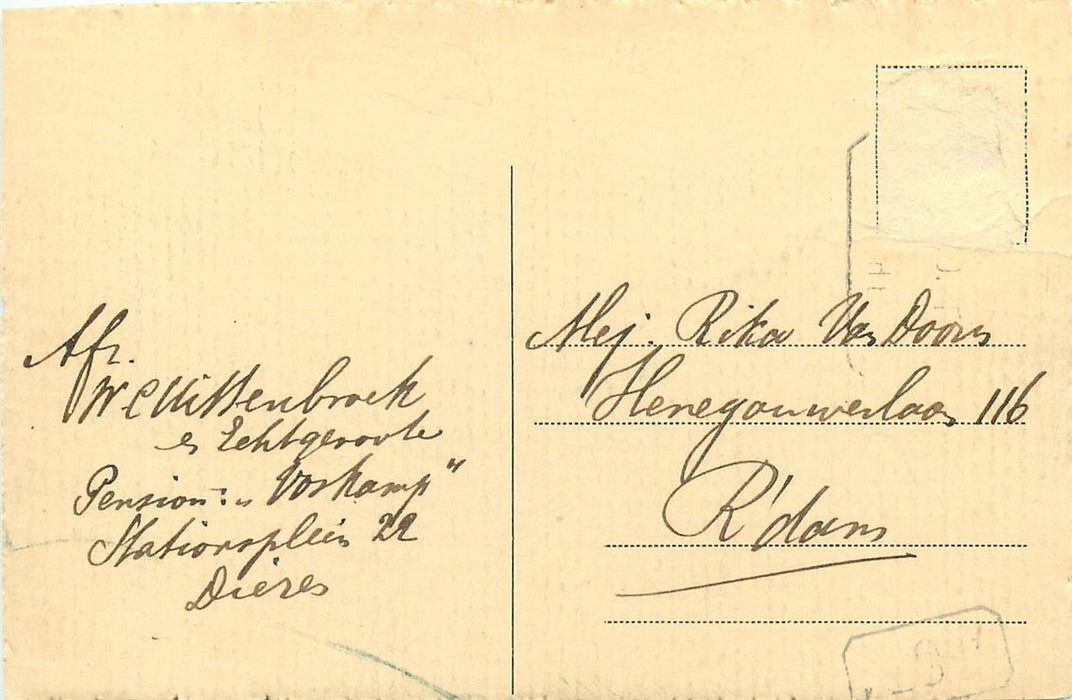 Afz.
W C Wittenbroek
en Echtgenoote
Pension: „Voskamp"
Stationsplein 22
Dieren
Mej. Rika Van Doorn
Henegouwerlaan 116
R'dam